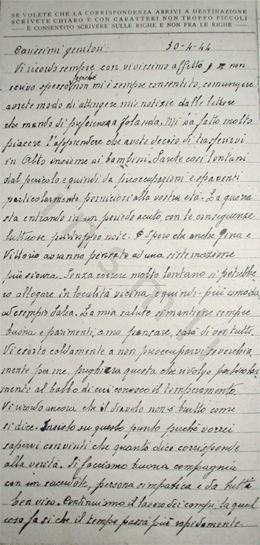 SE VOLETE CHE LA CORRISPONDENZA ARRIVI A DESTINAZIONE
SCRIVETE CHIARO E CON CARATTERI NON TROPPO PICCOLI
È CONSENTITO SCRIVERE SULLE RIGHE E NON FRA LE RIGHE
Carissimi genitori: 30-4-44
Vi ricordo sempre con vivissimo affetto, non
scrivo spesso perche non mi è sempre consentito, comunque
avrete modo di attingere mie notizie dalle lettere
che mando di preferenza a Jolanda. Mi ha fatto molto
piacere l'apprendere che avete deciso di trasferirvi
in Alto insieme ai bambini. Sarete così lontani
dal pericolo e quindi da preoccupazioni e spaventi
particolarmente perniciosi alla vostra età. La guerra
sta entrando in un periodo acuto, con le conseguenze
luttuose pur troppo note. Spero che anche Gina e
Vittorio avranno pensato ad una sistemazione
più sicura. Senza essere molto lontano si potrebbe
ro allogare in località vicina e quindi più comoda,
ad esempio dalea. La mia salute si mantiene sempre
buona e parimenti, amo pensare, sarà di voi tutti.
Vi esorto caldamente a non preoccuparvi soverchia
mente per me, preghiera questa che rivolgo particolar
mente al babbo di cui conosco il temperamento.
Vi ricordo ancora che il diavolo non è brutto come
si dice. Insisto su questo punto perchè vorrei
sapervi convinti che quanto dico corrisponde
alla verità. Ci facciamo buona compagnia
con un sacerdote, persona simpatica e da tutti
ben visto. Continuiamo il lavoro dei campi la qual
cosa fa si che il tempo passa più rapidamente.